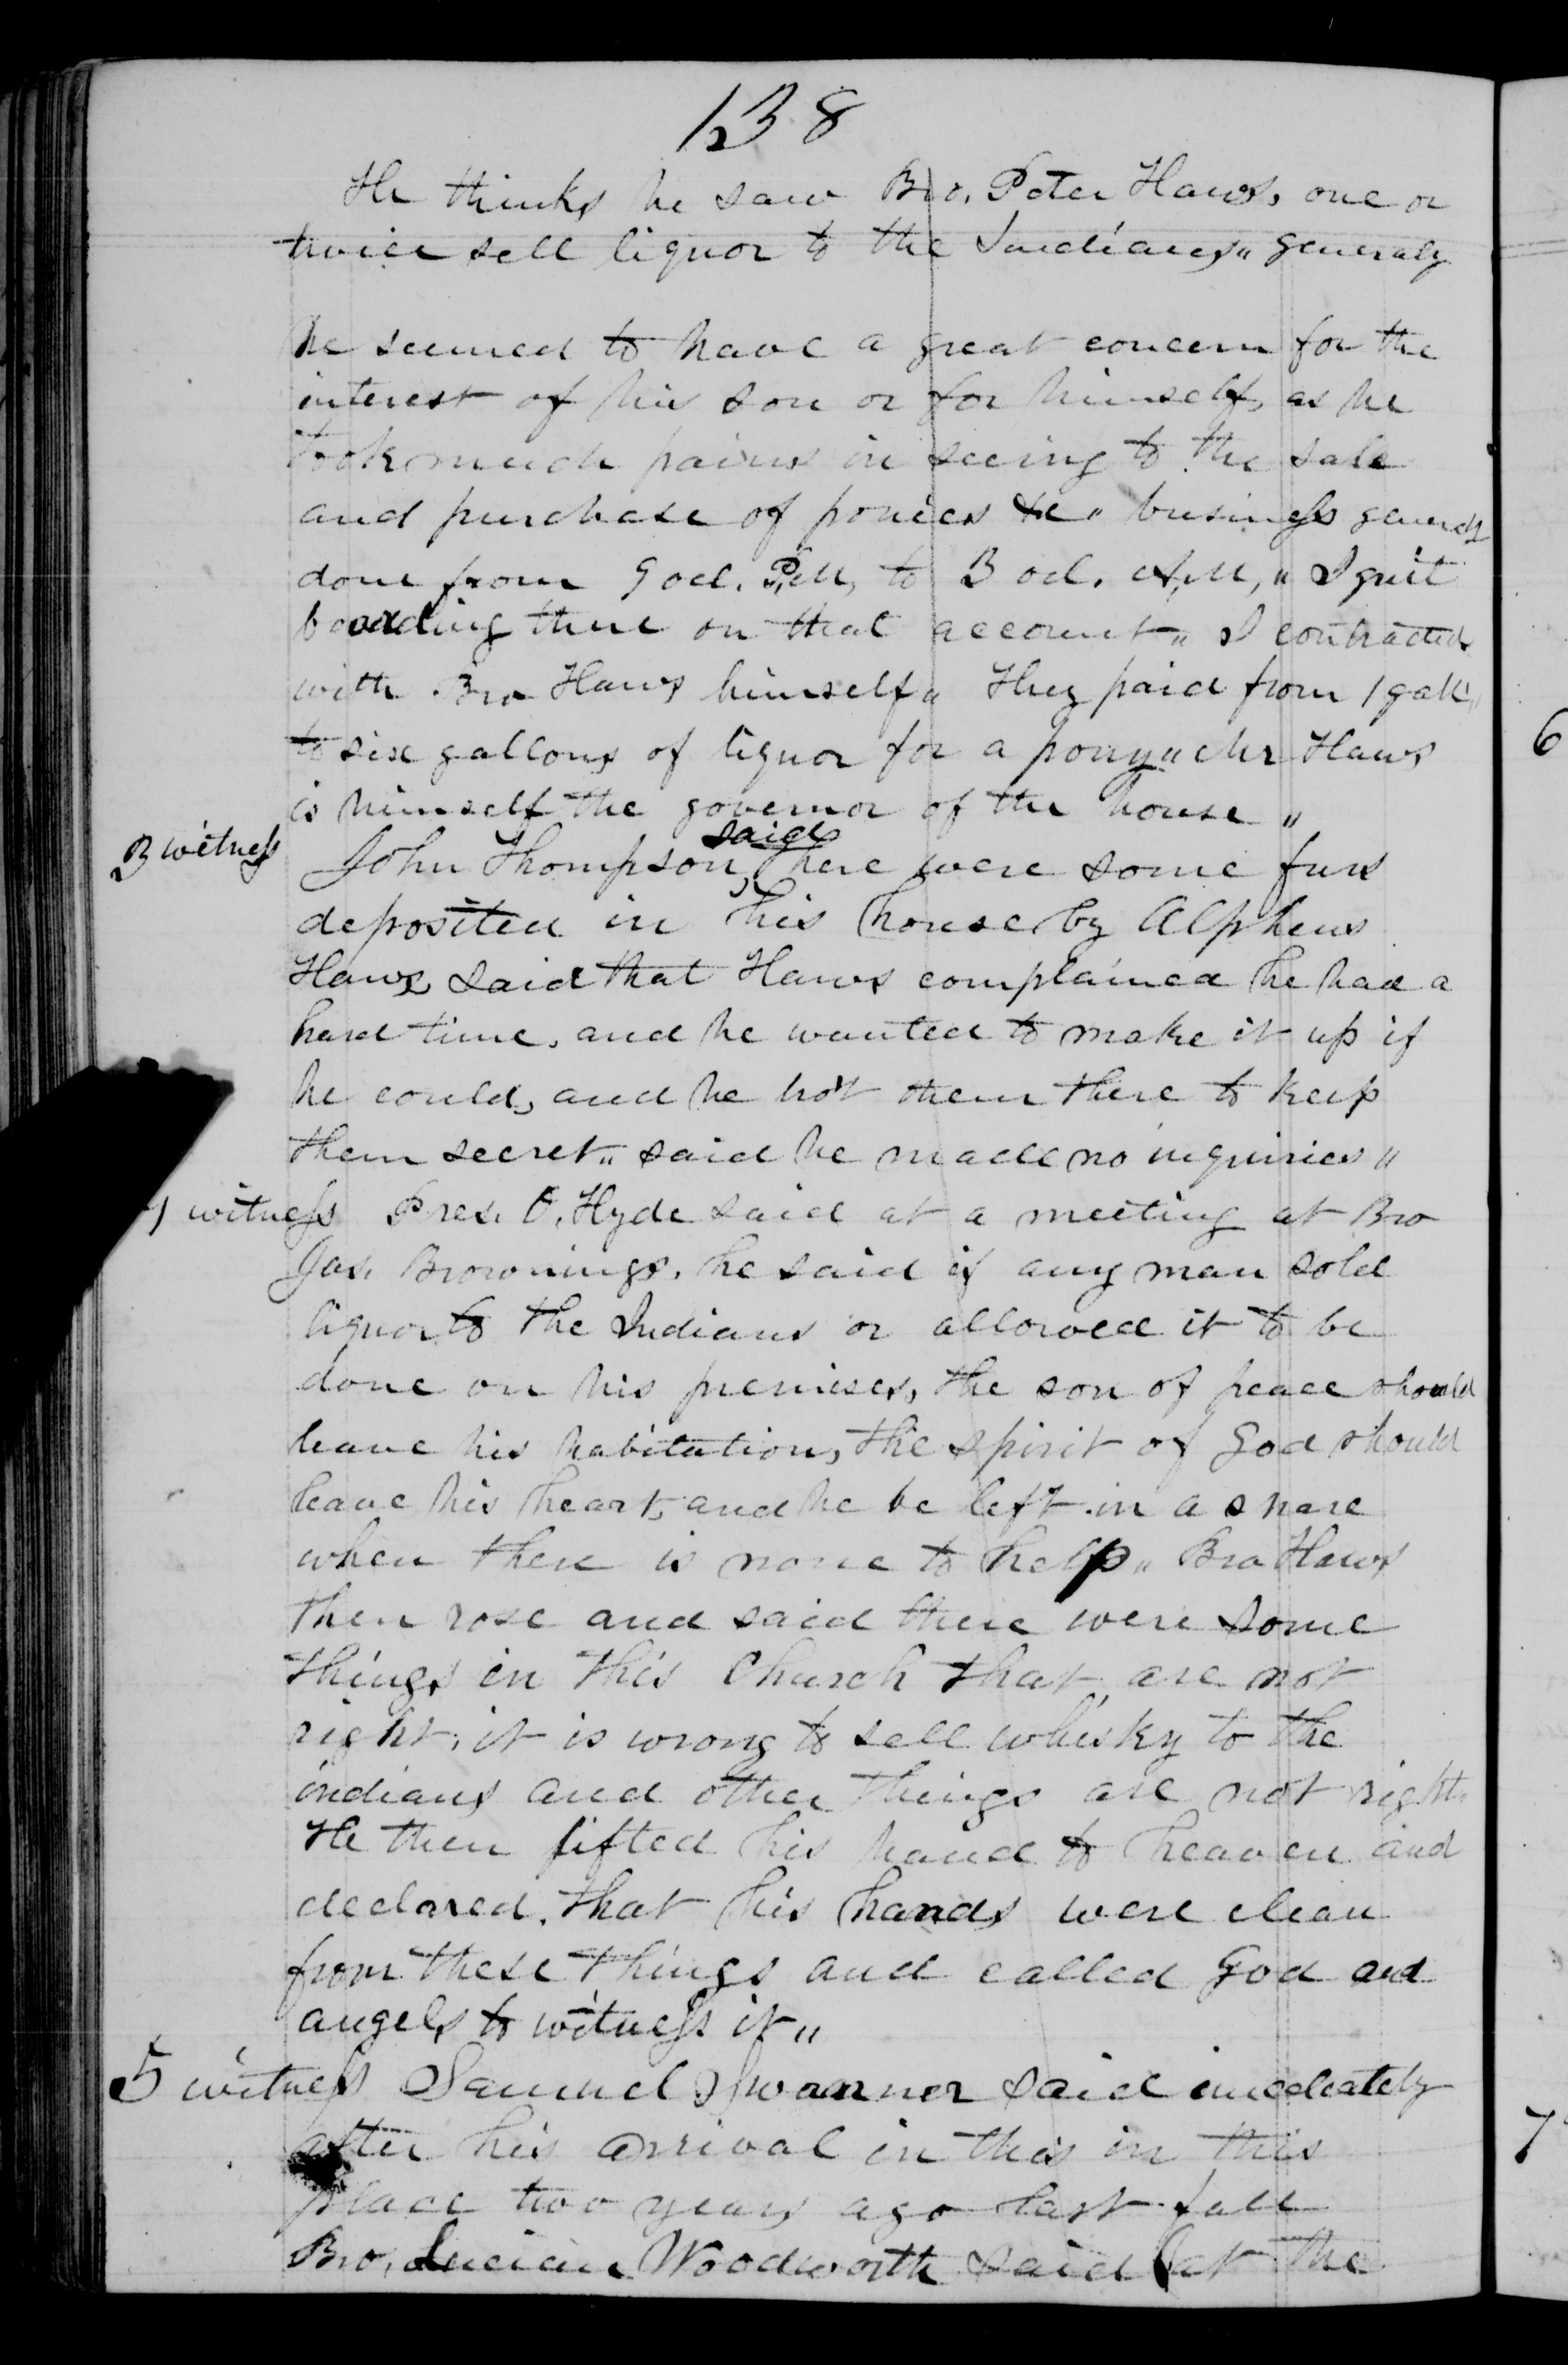 138
He thinks he saw Bro. Peter Haws, one or
twice sell liquor to the Indians,, generaly
he seemed to have a great concern for the
interest of his son or for himself, as he
took much pains in seeing to the sale
and purchase of ponies &c,, business generaly
done from 9 ocl. P.M, to 3 ocl. A.M,,, I quit
boarding there on that account,, I contracted
with Bro Haws himself,, They paid from 1 gall,
to six gallons of liquor for a pony,, Mr Haws
is himself the governor of the house ,,
3 witness John Thompson, said there were some furs
deposited in his house by Alpheus
Haws, said that Haws complained he had a
hard time, and he wanted to make it up if
he could, and he bro't them there to keep
them secret,, said he made no inquiries ,,
4 witness Pres. O. Hyde said at a meeting at Bro
Jas. Brownings. he said if any man sold
liquor to the Indians or allowed it to be
done on his premises, the son of peace should
leave his habitation, the spirit of God should
leave his heart, and he be left in a snare
when there is none to help,, Bro Haws
then rose and said there were some
things in this Church that are not
right, it is wrong to sell whisky to the
indians and other things are not right.
He then lifted his hand to heaven and
declared, that his hands were clean
from these things and called God and
angels to witness it,,
5 witness Samuel Swarner said imediately
after his arrival in this in this
place two years ago last fall
Bro. Lucian Woodworth said at the
6
7